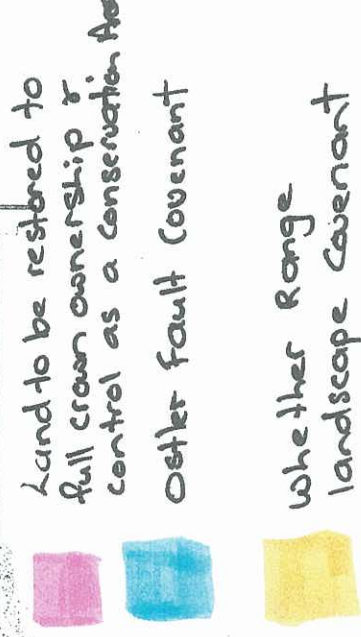 Land to be restored to
full crown ownership &
control as a conservation
Ostler Fault Covenant
Whether Range
landscape Covenant